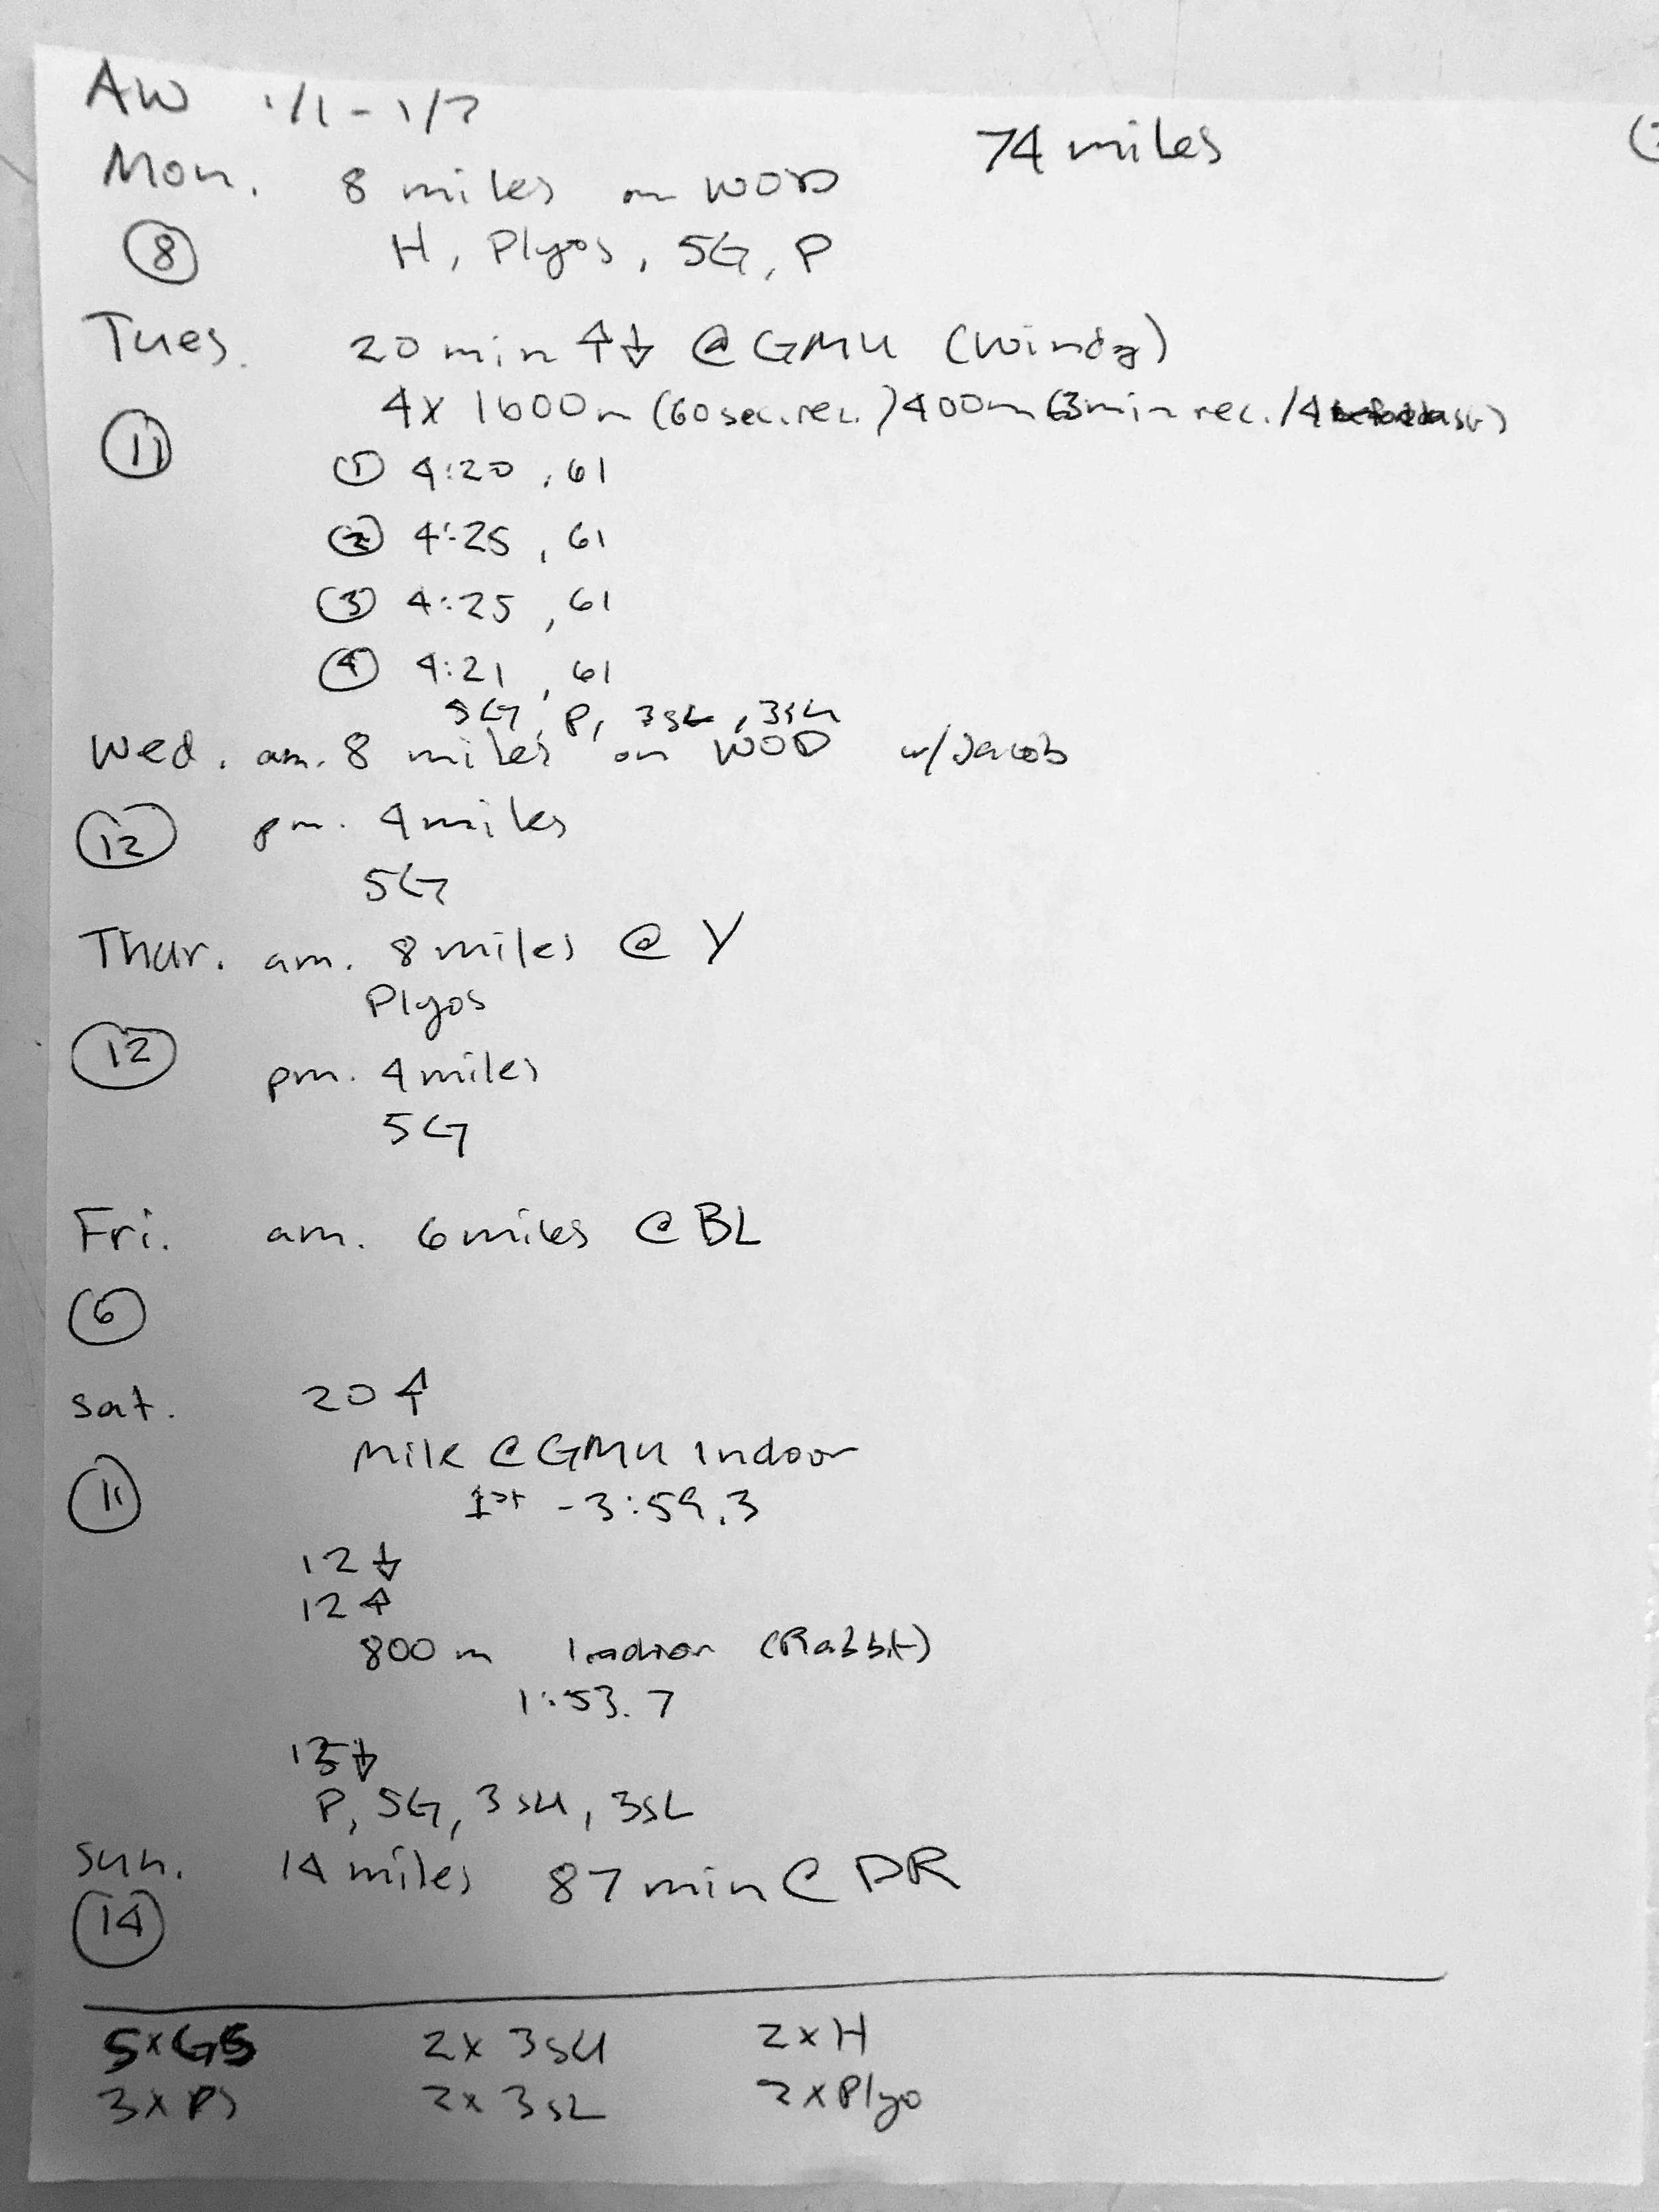 AW 1/1 - 1/7
74 miles
Mon. 8 miles on WOD
⑧ H, Plyos, 5G, P
Tues. 20 min ↑↓ @ GMU (windy)
4x 1600m (60 sec. rec.) 400m (3min rec. / 4
⑪
① 4:20, 61
② 4:25, 61
③ 4:25, 61
④ 4:21, 61
5G, P, 3SL, 3SU
Wed. am. 8 miles on WOD w/Jacob
⑫ pm. 4 miles
5G
Thur. am. 8 miles @ Y
Plyos
⑫
pm. 4 miles
5G
Fri. am. 6 miles @ BL
⑥
Sat. 20 ↑
Mile @ GMU Indoor
⑪ 1st - 3:59.3
12 ↓
12 ↑
800 m Indoor (Rabbit)
1:53.7
15 ↓
P, 5G, 3SU, 3SL
Sun. 14 miles 87 min @ DR
⑭
5xG5 2x 3SU 2xH
3x 2x 3SL 2xPlyo